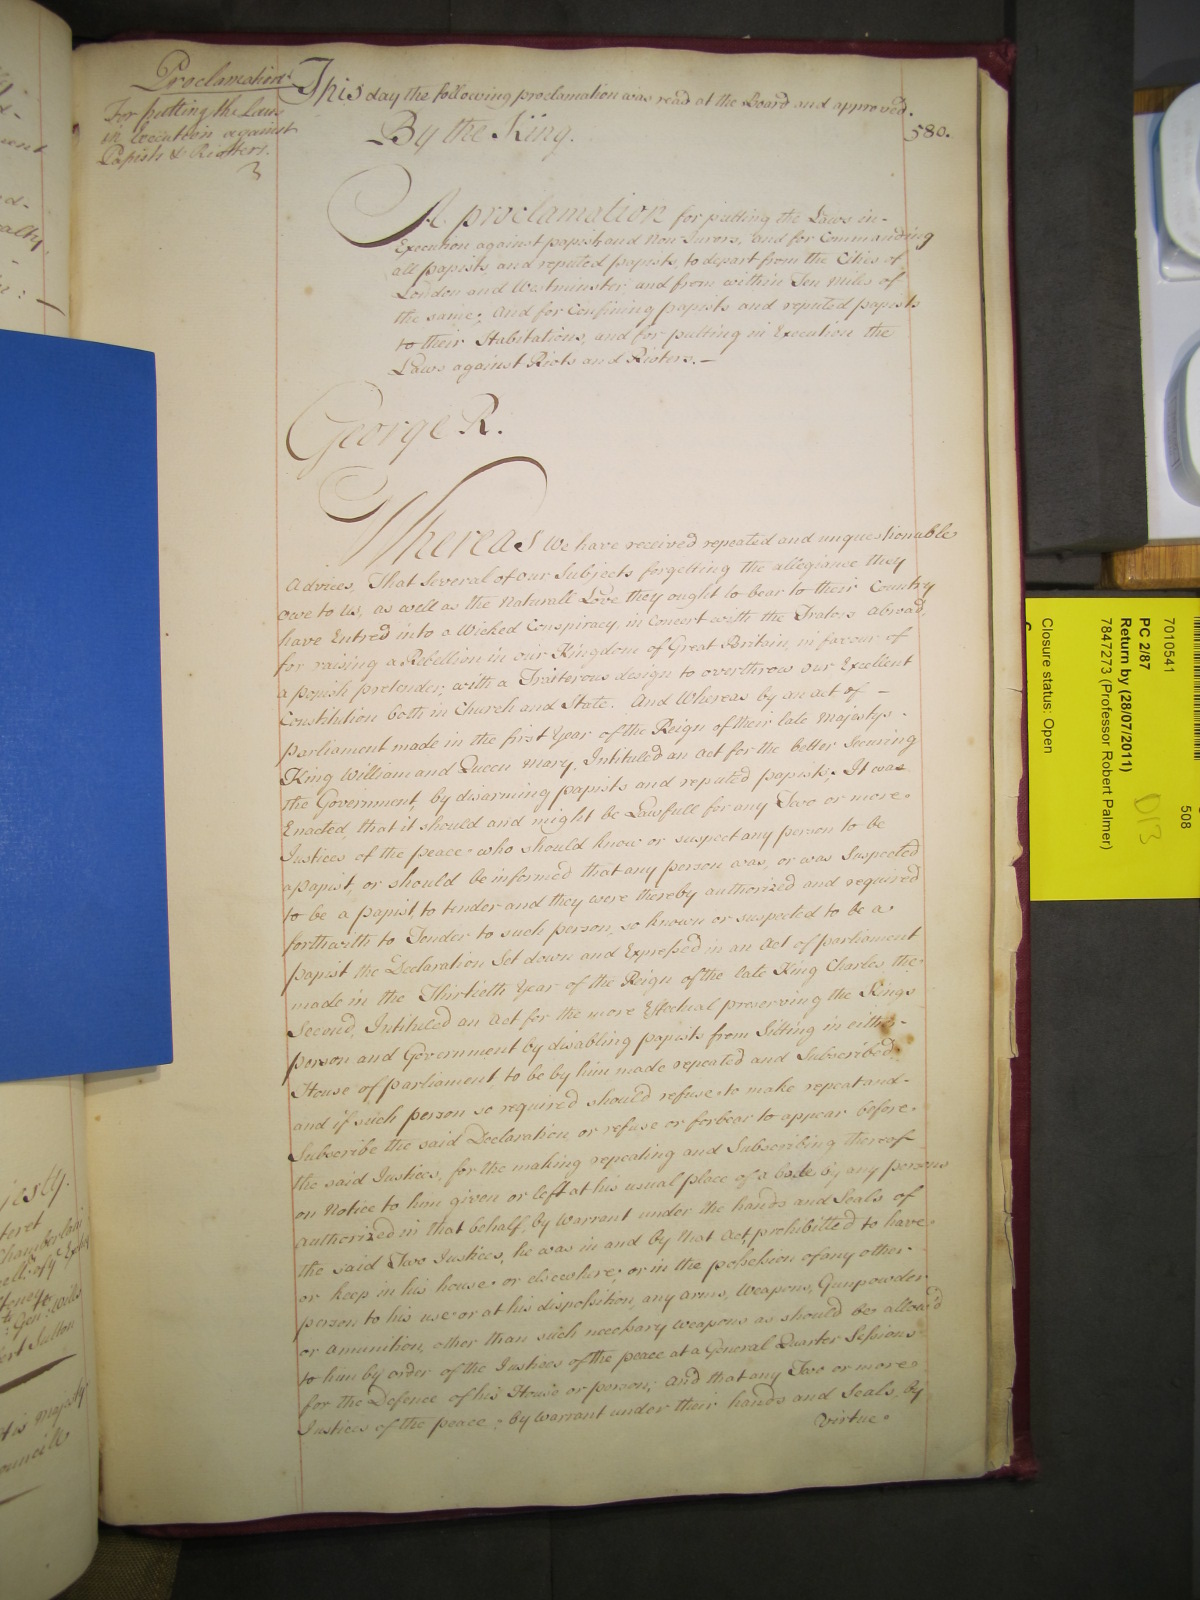 Proclamation
For putting the Laws
in Execution against
Papists & Rioters.
This day the following proclamation was read at the Board and approved.
580.
By the King.
A proclamation for putting the Laws in-
Execution against papists and Non Jurors, and for Commanding
all papists, and reputed papists, to depart from the Cities of
London and Westminster, and from within Ten Miles of
the same; And for Confining papists and reputed papists
to their Habitations, and for putting in Execution the
Laws against Riots and Rioters.—
George R.
Whereas We have received repeated and unquestionable
Advices, That Several of our Subjects forgetting the allegiance they
owe to Us, as well as the Naturall Love they ought to bear to their Country
have Entred into a Wicked Conspiracy, in Concert with the Traitors abroad,
for raising a Rebellion in our Kingdom of Great Britain, in favour of
a popish pretender; with a Traiterous design to overthrow our Excellent
Constitution both in Church and State. And Whereas by an act of -
Parliament made in the first Year of the Reign of their late Majestys
King William and Queen Mary, Intituled an act for the better Securing
the Government, by disarming papists and reputed papists; It was
Enacted, that it should and might be Lawfull for any Two or more
Justices of the peace who should know or suspect any person to be
a papist, or should be informed that any person was, or was Suspected
to be a papist, to tender and they were thereby authorized and required
forthwith to Tender to such person, so known or suspected to be a
papist the Declaration Set down and Expressed in an Act of parliament
made in the Thirtieth Year of the Reign of the late King Charles the
Second, Intituled an Act for the more Effectual preserving the Kings
person and Government by disabling papists from Sitting in either
House of parliament, to be by him made repeated and Subscribed.
and if such person so required should refuse to make repeat and-
Subscribe the said Declaration, or refuse or forbear to appear before
the said Justices, for the making repeating and Subscribing thereof
on Notice to him given or left at his usual place of abode by any persons
authorized in that behalf, by warrant under the hands and Seals of
the said Two Justices, he was in and by that Act, prohibitted to have
or keep in his house or elsewhere, or in the possession of any other
person to his use or at his disposition, any arms, Weapons, Gunpowder
or Amunition, other than such necessary weapons as should be allow'd
to him by order of the Justices of the peace at a General Quarter Sessions
for the Defence of his House or person; And that any Two or more
Justices of the peace, by warrant under their hands and Seals, by
virtue
7010541
PC 2/87
Return by (28/07/2011)
7847273 (Professor Robert Palmer)
Closure status: Open
D13
508
jesty.
Chamberlain
Sutton
his Majesty
ouncill